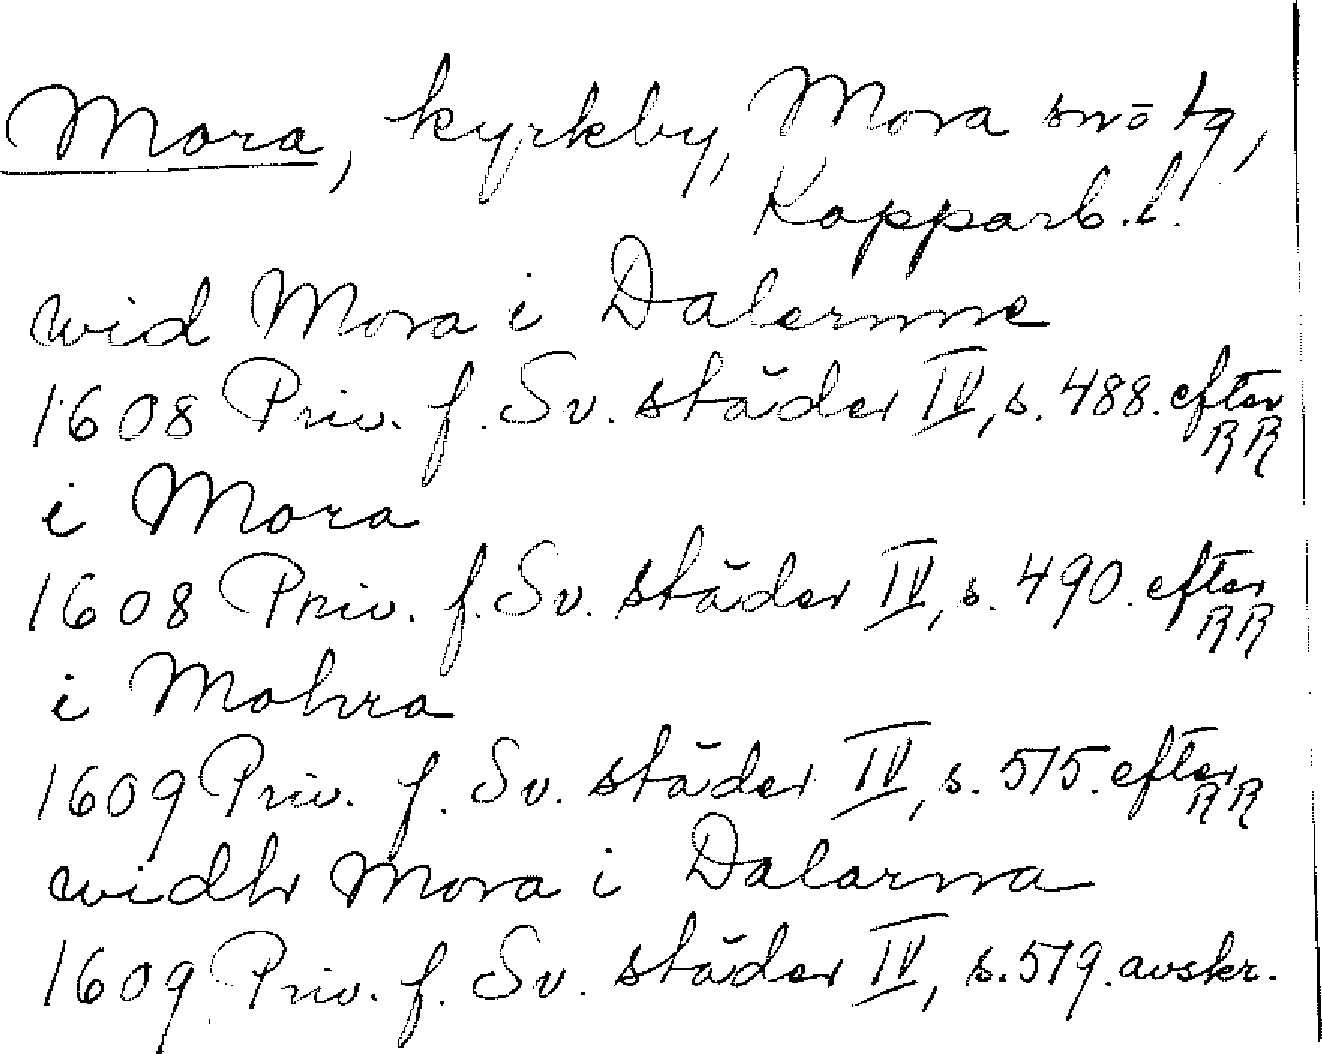 Mora, kyrkby, Mora sn o tg,
Kopparb. l.
wid Mora i Dalernne
1608 Priv. f. Sv. städer IV, s. 488. efter RR
i Mora
1608 Priv. f. Sv. städer IV, s. 490. efter RR
i Mohra
1609 Priv. f. Sv. städer IV, s. 515. efter RR
widh Mora i Dalarna
1609 Priv. f. Sv. städer IV, s. 519. avskr.